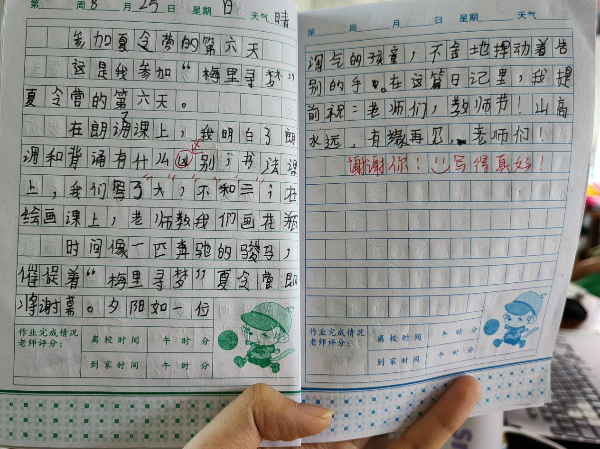 第 周 8 月 25 日 星期 日 天气 晴
参加夏令营的第六天
这是我参加“梅里寻梦”
夏令营的第六天。
在朗诵课上，我明白了朗
诵和背诵有什么区别；书法课
上，我们写了大，不和三；在
绘画课上，老师教我们画花瓶
时间像一匹奔驰的骏马，
催促着“梅里寻梦”夏令营即
将谢幕。夕阳如一位
作业完成情况
老师评分：
离校时间 午 时 分
到家时间 午 时 分
第 周 月 日 星期 天气
淘气的孩童，不舍地挥动着告
别的手。在这篇日记里，我提
前祝：老师们，教师节！山高
水远，有缘再见，老师们！
谢谢你！写得真好！
作业完成情况
老师评分：
离校时间 午 时 分
到家时间 午 时 分